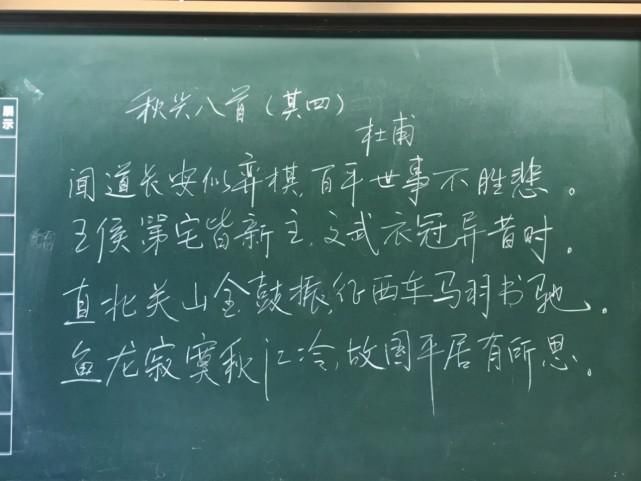 展示
秋兴八首（其四）
杜甫
闻道长安似弈棋，百年世事不胜悲。
王侯第宅皆新主，文武衣冠异昔时。
直北关山金鼓振，征西车马羽书驰。
鱼龙寂寞秋江冷，故国平居有所思。